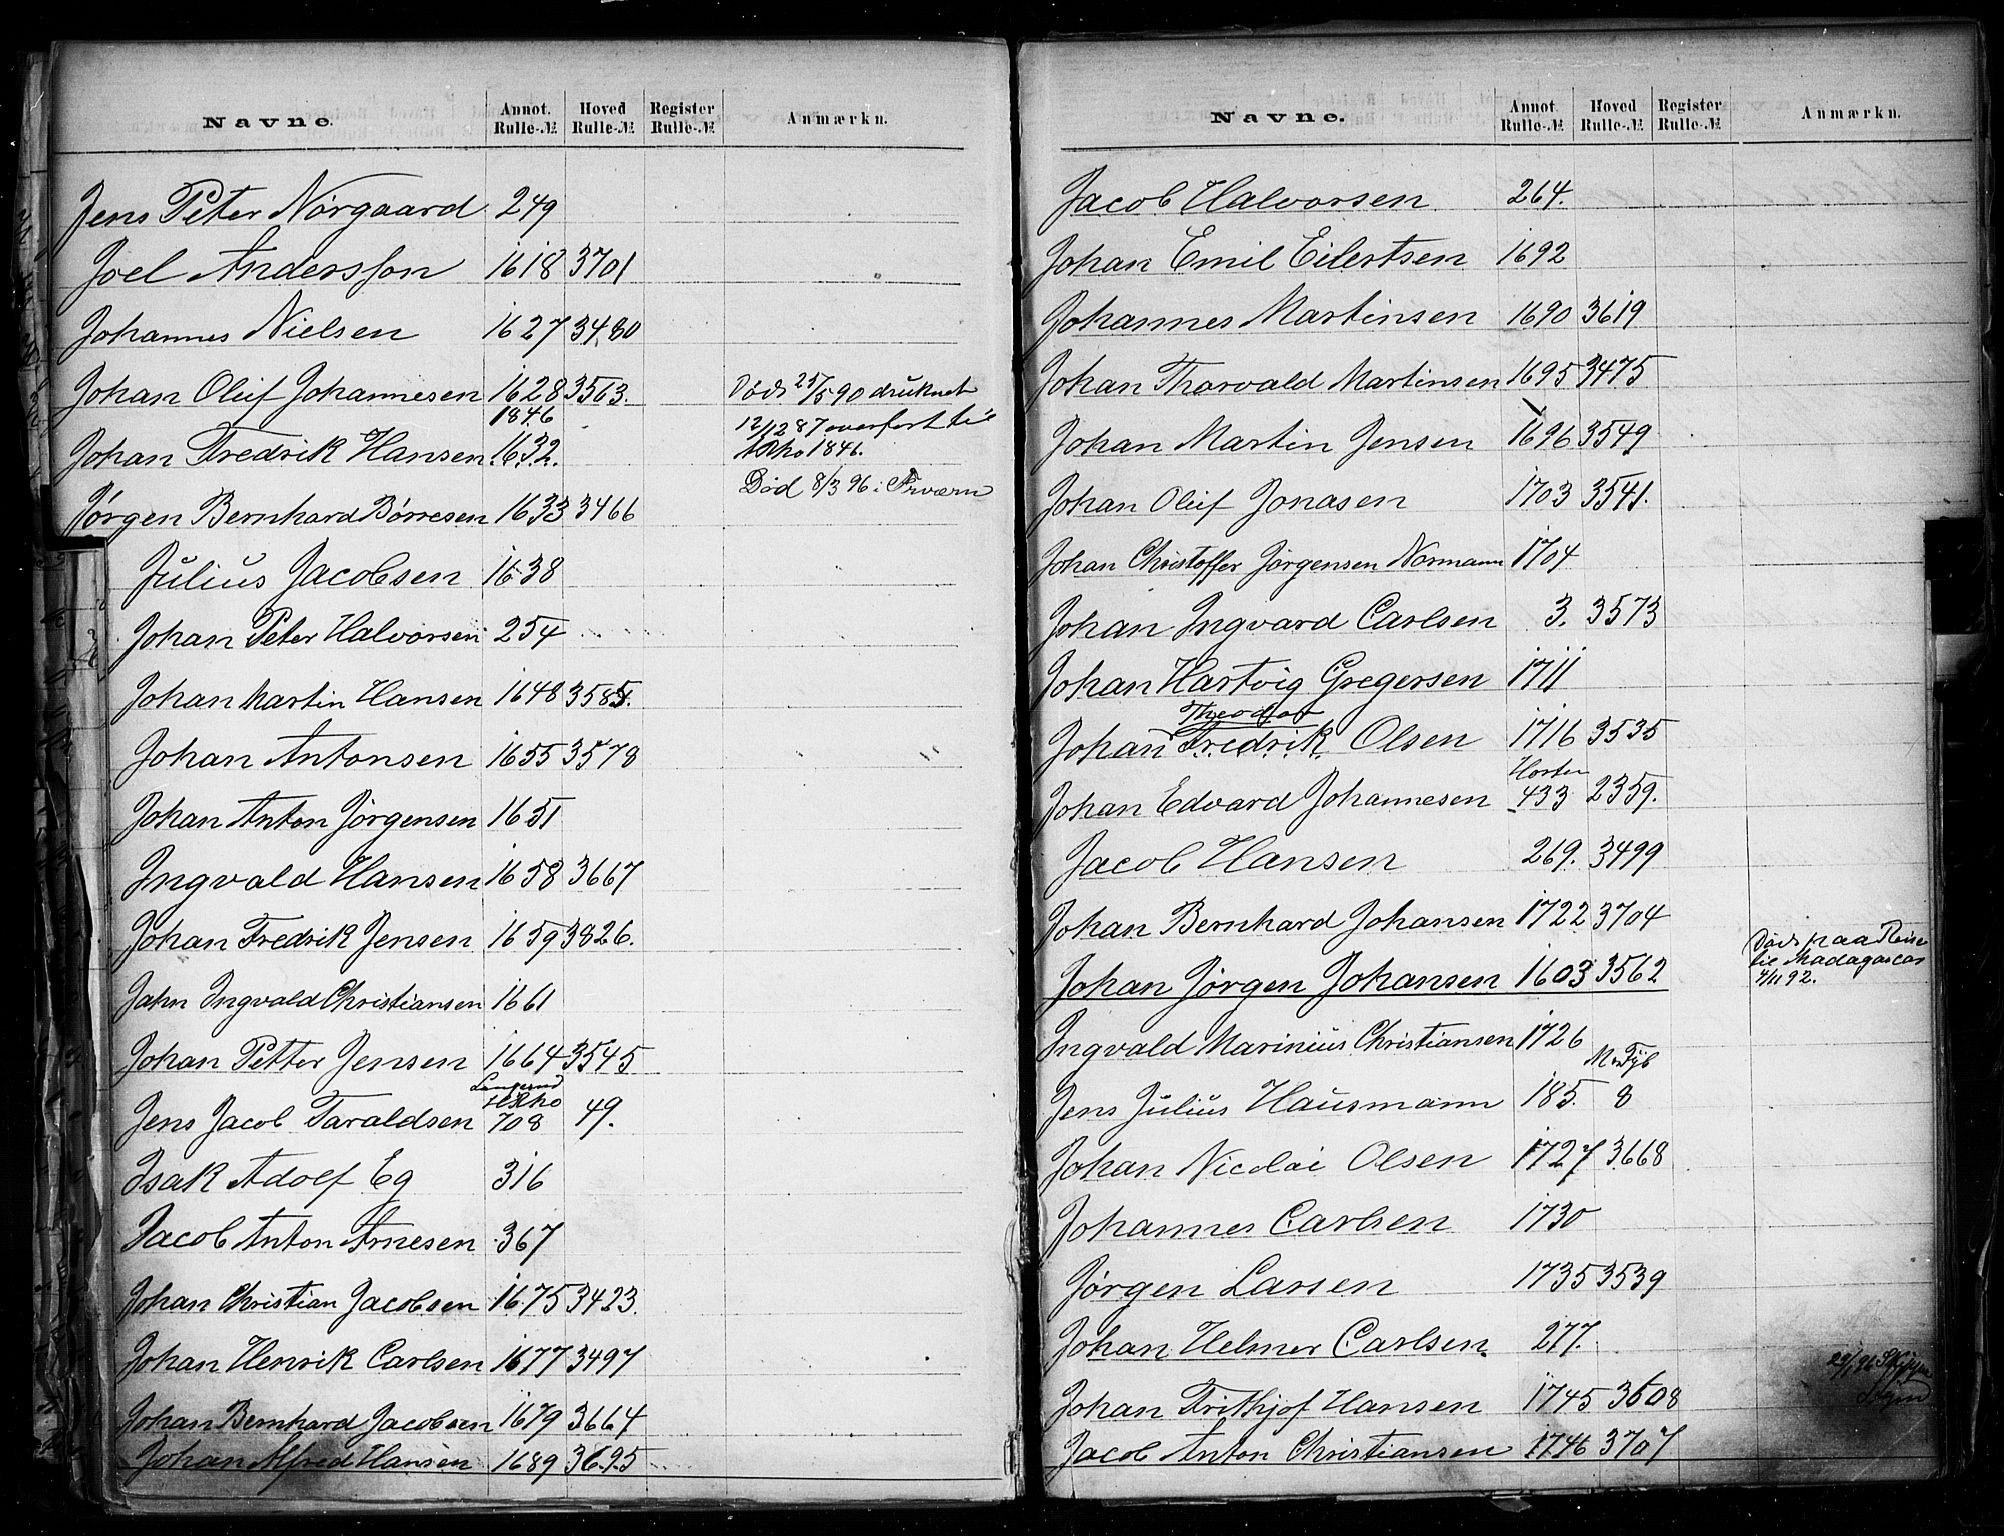 Navne. Annot. Rulle-№ Hoved Rulle-№ Register Rulle-№ Anmærkn.
Jens Peter Nørgaard 249
Joel Andersson 1618 3701
Johannes Nielsen 1627 3480
Johan Oluf Johannesen 1628 3563. Død 25/5 90 druknet
Johan Fredrik Hansen 1846 1632. 12/12 87 overført til ARno 1846.
Jørgen Bernhard Børresen 1633 3466 Død 8/3 96 i
Julius Jacobsen 1638
Johan Peter Halvorsen 254
Johan Martin Hansen 1648 3585.
Johan Antonsen 1655 3578
Johan Anton Jørgensen 1651
Ingvald Hansen 1658 3667
Johan Fredrik Jensen 1659 3826.
Jahn Ingvald Christiansen 1661
Johan Petter Jensen 1664 3545
Jens Jacob Taraldsen 708 49.
Isak Adolf Eg 316
Jacob Anton Arnesen 367
Johan Christian Jacobsen 1675 3423.
Johan Henrik Carlsen 1677 3497
Johan Bernhard Jacobsen 1679 3664
Johan Alfred Hansen 1689 3695
Navne. Annot. Rulle-№ Hoved Rulle-№ Register Rulle-№ Anmærkn.
Jacob Halvorsen 264.
Johan Emil Eilertsen 1692
Johannes Martinsen 1690 3619
Johan Thorvald Martinsen 1695 3475
Johan Martin Jensen 1696 3549
Johan Oluf Jonasen 1703 3541.
Johan Christoffer Jørgensen Normann 1704
Johan Ingvard Carlsen 3. 3573
Johan Hartvig Gregersen 1711
Theodor
Johan Fredrik Olsen 1716 3535
Johan Edvard Johannesen Horten 433 2359.
Jacob Hansen 269. 3499
Johan Bernhard Johansen 1722 3704
Johan Jørgen Johansen 1603 3562 Død paa Reise til Madagascar 4/11 92.
Ingvald Marinius Christiansen 1726
Jens Julius Hausmann 185. 8
Johan Nicolai Olsen 1727 3668
Johannes Carlsen 1730
Jørgen Larsen 1735 3539
Johan Helmer Carlsen 277.
Johan Frithjof Hansen 1745 3608
Jacob Anton Christiansen 1746 3707